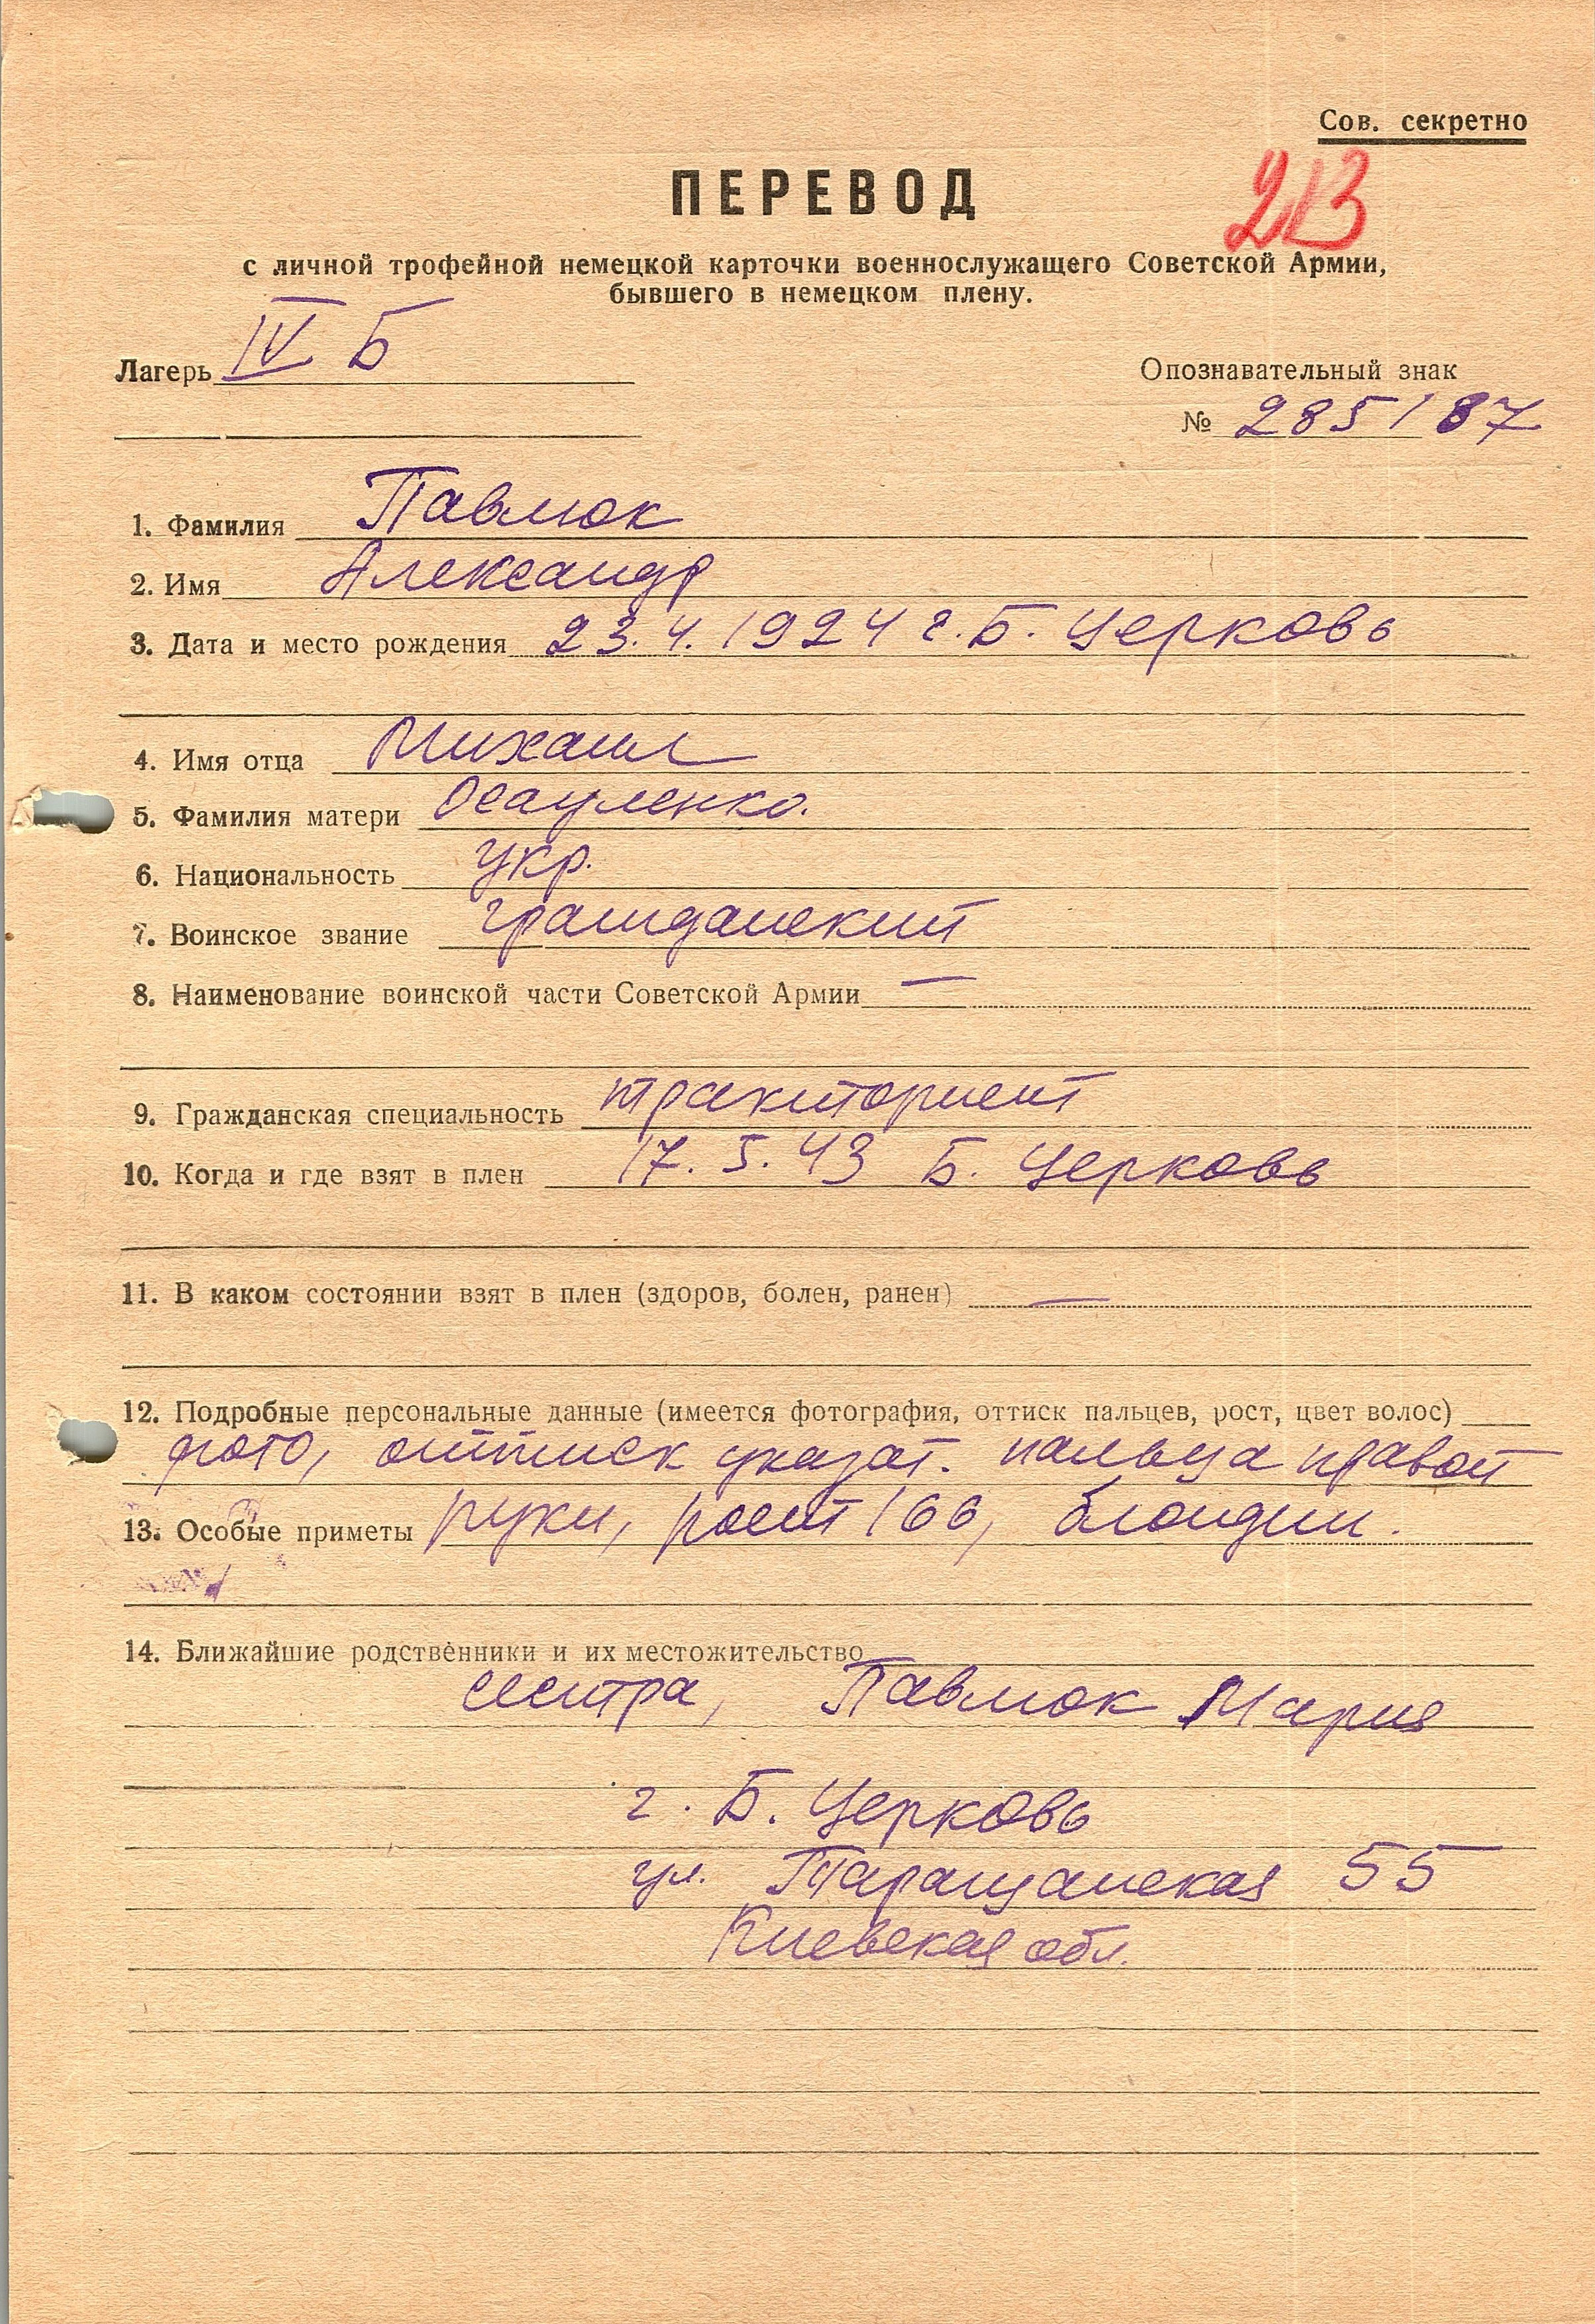 Сов. секретно
ПЕРЕВОД
213
с личной трофейной немецкой карточки военнослужащего Советской Армии,
бывшего в немецком плену.
Лагерь IV Б
Опознавательный знак
№ 285187
1. Фамилия Павлюк
2. Имя Александр
3. Дата и место рождения 23.4.1924 г. Б. Церковь
4. Имя отца Михаил
5. Фамилия матери Осауленко.
6. Национальность укр.
7. Воинское звание гражданский
8. Наименование воинской части Советской Армии —
9. Гражданская специальность тракторист
10. Когда и где взят в плен 17.5.43 Б. Церковь
11. В каком состоянии взят в плен (здоров, болен, ранен) —
12. Подробные персональные данные (имеется фотография, оттиск пальцев, рост, цвет волос)
фото, оттиск указат. пальца правой
13. Особые приметы руки, рост 166, блондин.
14. Ближайшие родственники и их местожительство
сестра, Павлюк Мария
г. Б. Церковь
ул. Таращанская 55
Киевская обл.